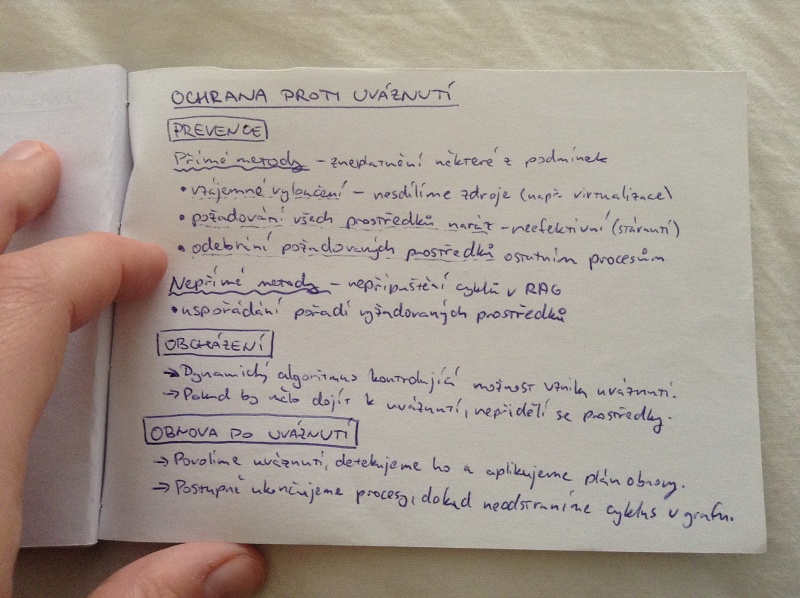 OCHRANA PROTI UVÁZNUTÍ
PREVENCE
Přímé metody - zneplatnění některé z podmínek
• vzájemné vyloučení - nesdílíme zdroje (např. virtualizace)
• požadování všech prostředků naráz - neefektivní (stárnutí)
• odebrání požadovaných prostředků ostatním procesům
Nepřímé metody - nepřipuštění cyklů v RAG
• uspořádání pořadí vyžadovaných prostředků
OBCHÁZENÍ
→ Dynamický algoritmus kontrolující možnost vzniku uváznutí.
→ Pokud by mělo dojít k uváznutí, nepřidělí se prostředky.
OBNOVA PO UVÁZNUTÍ
→ Povolíme uváznutí, detekujeme ho a aplikujeme plán obnovy.
→ Postupně ukončujeme procesy, dokud neodstraníme cyklus v grafu.